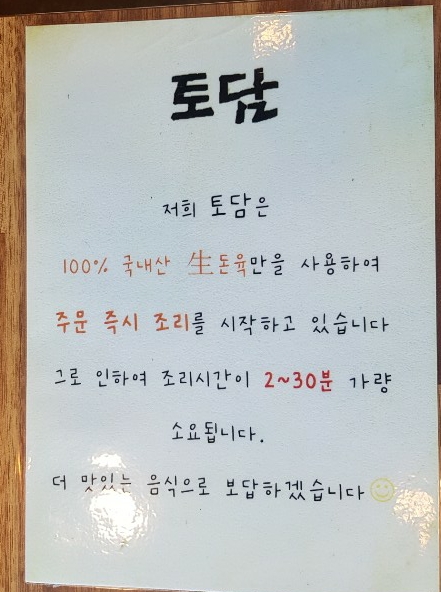 토담
저희 토담은
100% 국내산 生돈육만을 사용하여
주문 즉시 조리를 시작하고 있습니다
그로 인하여 조리시간이 2~30분 가량
소요됩니다.
더 맛있는 음식으로 보답하겠습니다